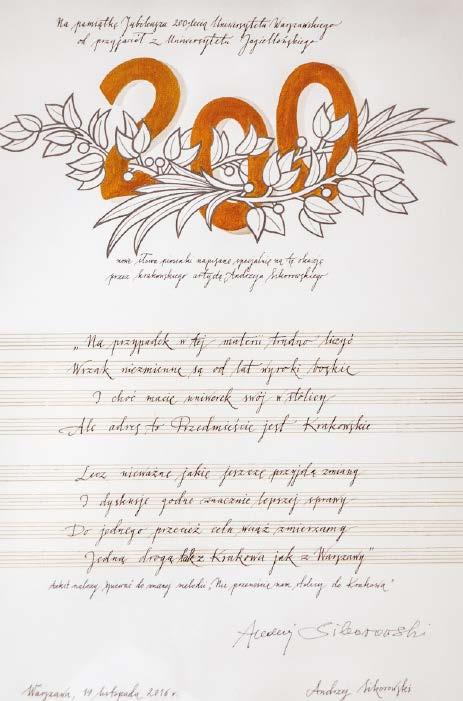 Na pamiątkę Jubileusza 200-lecia Uniwersytetu Warszawskiego
od przyjaciół z Uniwersytetu Jagiellońskiego
200
nowe słowa piosenki napisane specjalnie na tę okazję
przez krakowskiego artystę Andrzeja Sikorowskiego
„Na przypadek w tej materii trudno liczyć
Wszak niezmienne są od lat wyroki boskie
I choć macie uniworek swój w stolicy
Ale adres to Przedmieście jest Krakowskie
Lecz nieważne jakie jeszcze przyjdą zmiany
I dyskusje godne znacznie lepszej sprawy
Do jednego przecież celu wciąż zmierzamy
Jedną drogą tak z Krakowa jak z Warszawy”
tekst należy śpiewać do znanej melodii „Nie przenoście nam stolicy do Krakowa”
Andrzej Sikorowski
Warszawa, 19 listopada 2016 r.
Andrzej Sikorowski